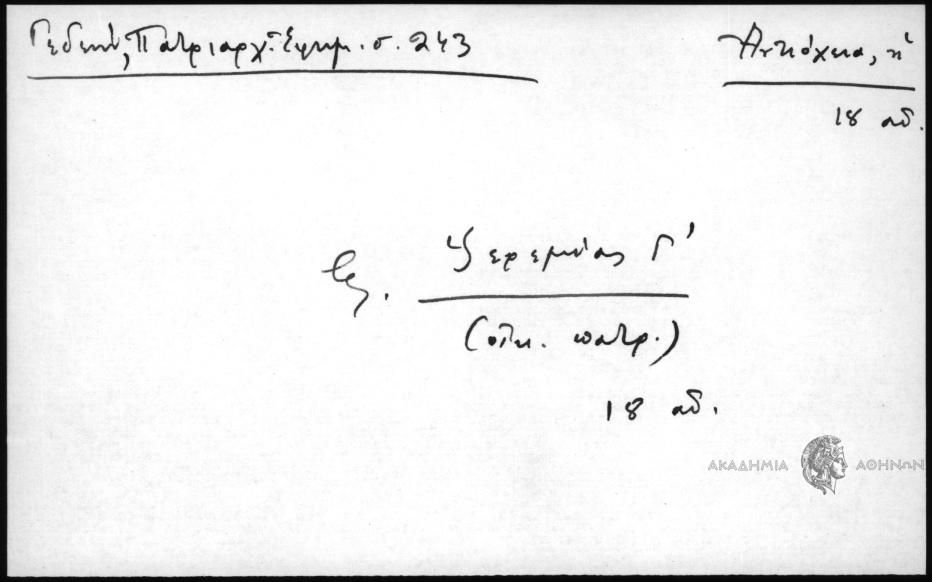 Γεδεών, Πατριαρχ. Ἐφημ. σ. 243
Ἀντιόχεια, ἡ
18 αἰ.
Ἱερεμίας Γ'
(οἰκ. πατρ.)
18 αἰ.
ΑΚΑΔΗΜΙΑ ΑΘΗΝΩΝ